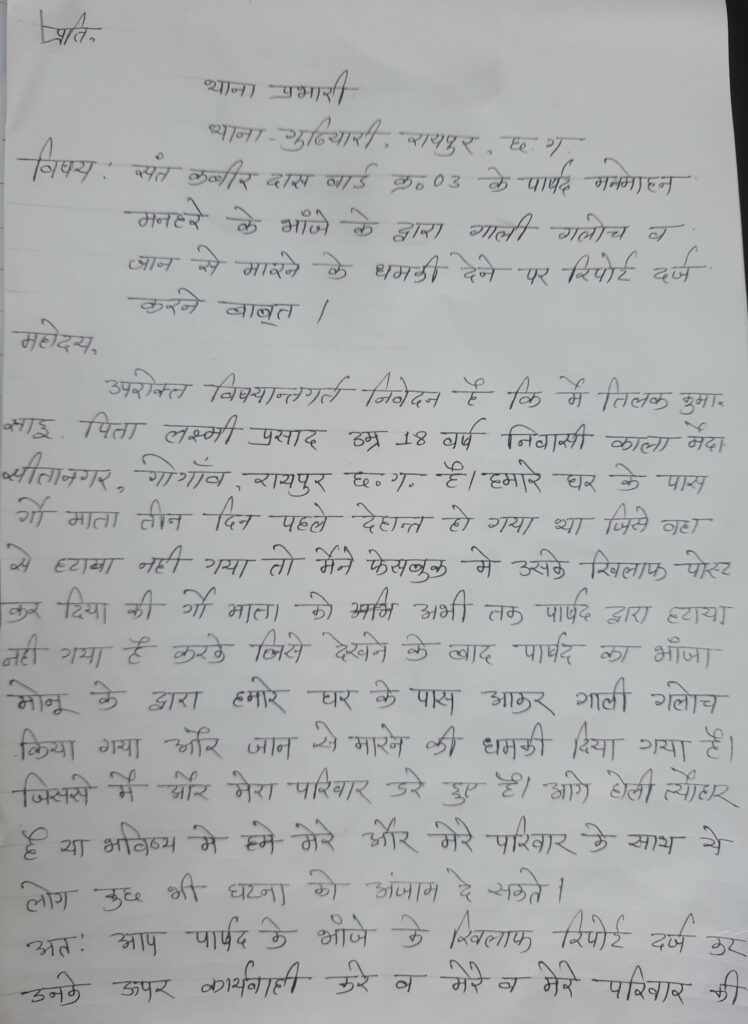 प्रति,
थाना प्रभारी
थाना - गुढियारी, रायपुर, छ. ग.
विषय : संत कबीर दास वार्ड क्र. 03 के पार्षद मनमोहन
मनहरे के भाँजे के द्वारा गाली गलोच व
जान से मारने के धमकी देने पर रिपोर्ट दर्ज
करने बाबत ।
महोदय,
उपरोक्त विषयान्तगर्त निवेदन है कि मैं तिलक कुमार
साहू. पिता लक्ष्मी प्रसाद उम्र 18 वर्ष निवासी काला मैदा
सीतानगर, गोगाँव, रायपुर छ. ग. है। हमारे घर के पास
गौ माता तीन दिन पहले देहान्त हो गया था जिसे वहा
से हटाया नही गया तो मैंने फेसबुक मे उसके खिलाफ पोस्ट
कर दिया की गौ माता को अभी तक पार्षद द्वारा हटाया
नही गया है करके जिसे देखने के बाद पार्षद का भाँजा
मोनू के द्वारा हमारे घर के पास आकर गाली गलोच
किया गया और जान से मारने की धमकी दिया गया है।
जिससे मैं और मेरा परिवार डरे हुए है। आगे होली त्यौहार
है या भविष्य मे हमे मेरे और मेरे परिवार के साथ ये
लोग कुछ भी घटना को अंजाम दे सकते ।
अतः आप पार्षद के भाँजे के खिलाफ रिपोर्ट दर्ज कर
उनके ऊपर कार्यवाही करे व मेरे व मेरे परिवार की